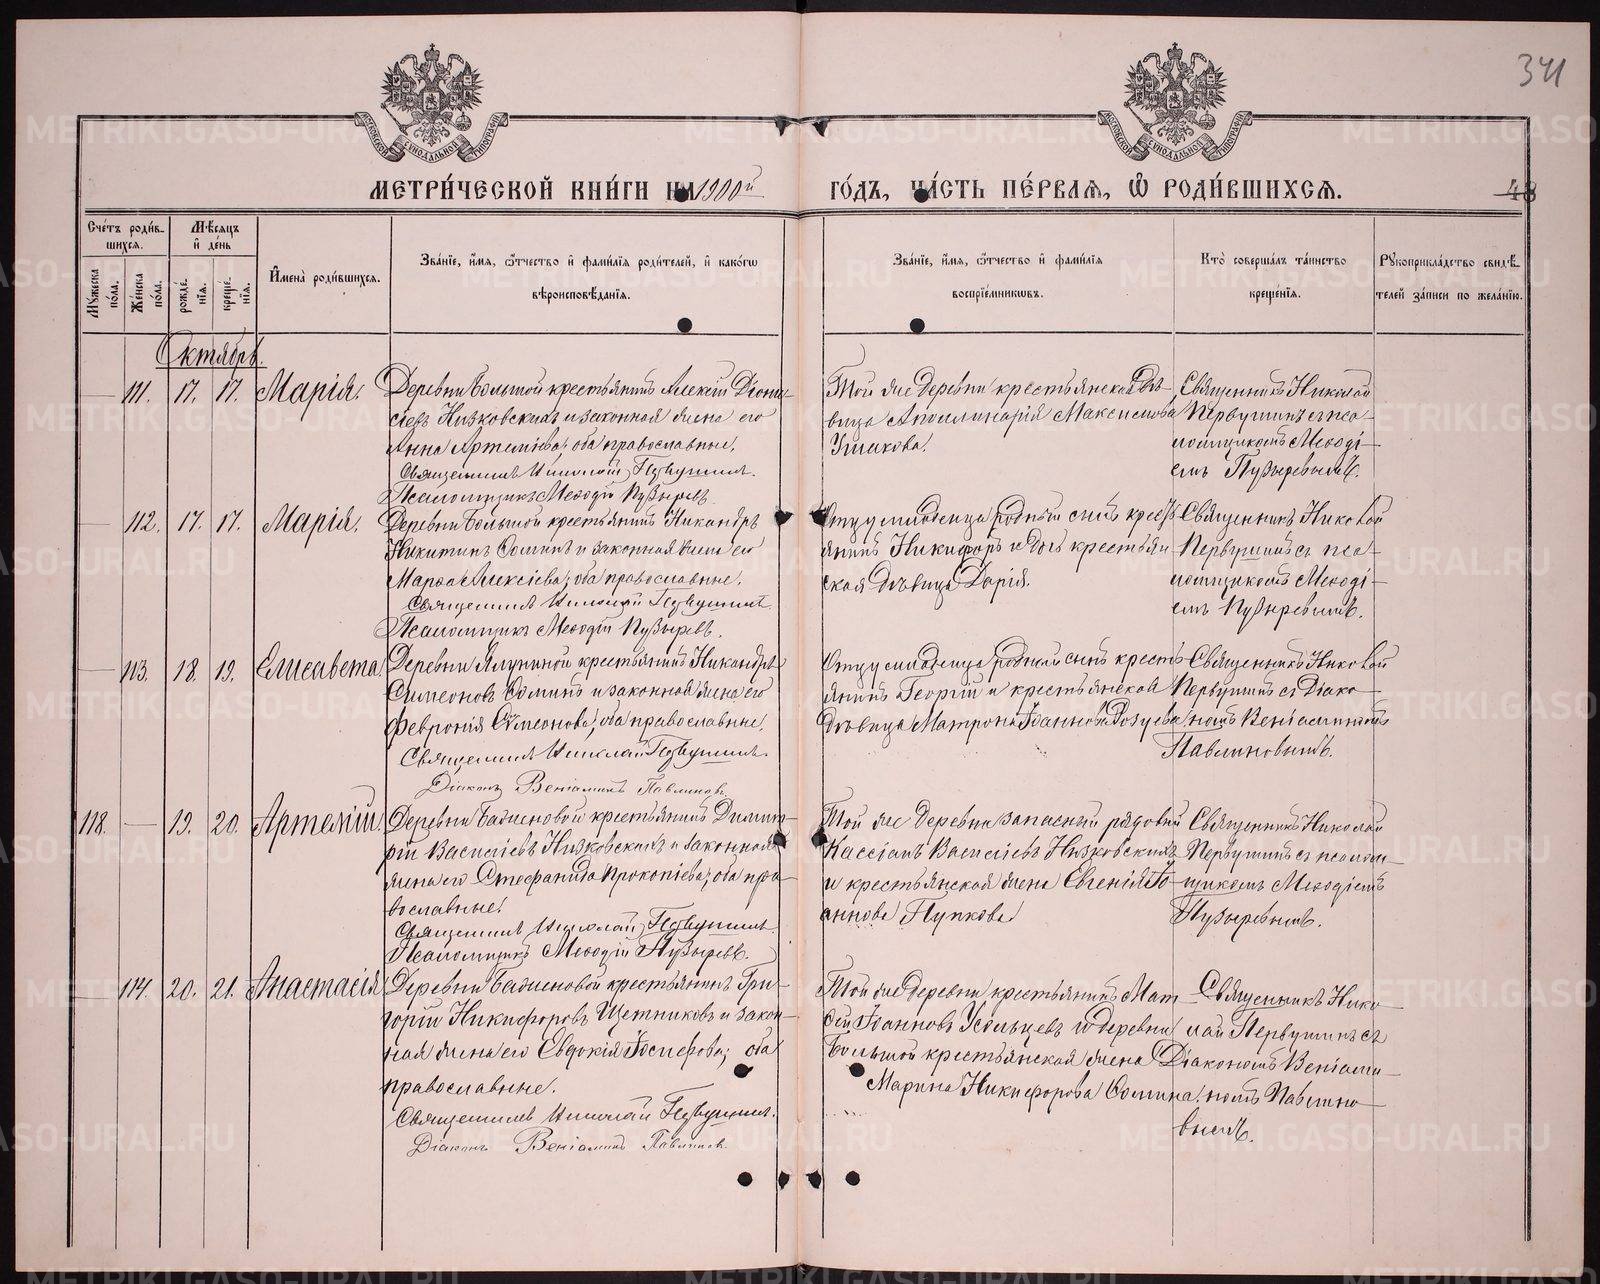 341
МОСКОВСКОЙ СѴНОДАЛЬНОЙ ТИПОГРАФІИ
МОСКОВСКОЙ СѴНОДАЛЬНОЙ ТИПОГРАФІИ
МЕТРИ́ЧЕСКОЙ КНИ́ГИ НА 1900й ГО́ДЪ, ЧА́СТЬ ПЕ́РВАЯ, Ѡ РОДИ́ВШИХСЯ.
48
Сче́тъ роди́в-
шихся.
Мѣ́сяцъ
и҆ де́нь
Мꙋ́жеска по́ла.
Же́нска по́ла.
рожде́нїя.
креще́нїя.
И҆мена̀ роди́вшихся.
Зва́нїе, и҆́мя, ѻ҆́тчество и҆ фами́лїя роди́телей, и҆ како́гѡ
вѣроисповѣ́данїя.
Зва́нїе, и҆́мя, ѻ҆́тчество и҆ фами́лїя
воспрїе́мникѡвъ.
Кто̀ соверша́лъ та́инство
креще́нїя.
Рꙋкоприкла́дство свидѣ́-
телей за́писи по жела́нїю.
Октябрь.
111. 17. 17. Марія.
Деревни Большой крестьянинъ Алексій Діони-
сіевъ Низковскихъ и законная жена его
Анна Артеміева; оба православные.
Священникъ Николай Первушинъ.
Псаломщикъ Меѳодій Пузыревъ.
Той же деревни крестьянская дѣ-
вица Аполлинарія Максимова
Ушакова.
Священникъ Николай
Первушинъ съ пса-
ломщикомъ Меѳоді-
емъ Пузыревымъ.
112. 17. 17. Марія.
Деревни Большой крестьянинъ Никандръ
Никитинъ Соминъ и законная жена его
Марѳа Алексіева; оба православные.
Священникъ Николай Первушинъ.
Псаломщикъ Меѳодій Пузыревъ.
Отцу младенца родный сынъ кресть-
янинъ Никифоръ и дочь крестьян-
ская дѣвица Дарія.
Священникъ Николай
Первушинъ съ пса-
ломщикомъ Меѳоді-
емъ Пузыревымъ.
113. 18. 19. Елисавета
Деревни Ялуниной крестьянинъ Никандръ
Симеоновъ Соминъ и законная жена его
Февронія Симеонова; оба православные.
Священникъ Николай Первушинъ.
Діаконъ Веніаминъ Павлиновъ.
Отцу младенца родный сынъ кресть-
янинъ Георгій и крестьянская
дѣвица Матрона Іоаннова
Священникъ Николай
Первушинъ съ Діако-
номъ Веніаминомъ
Павлиновымъ.
118. 19. 20. Артемій.
Деревни крестьянинъ Димит-
рій Василіевъ Низковскихъ и законная
жена его Стефанида Прокопіева; оба пра-
вославные.
Священникъ Николай Первушинъ.
Псаломщикъ Меѳодій Пузыревъ.
Той же деревни запасный рядовой
Кассіанъ Василіевъ Низковскихъ
и крестьянская жена Евгенія Іо-
аннова Пупкова
Священникъ Николай
Первушинъ съ псалом-
щикомъ Меѳодіемъ
Пузыревымъ.
114. 20. 21. Анастасія
Деревни крестьянинъ Гри-
горій Никифоровъ Щетниковъ и закон-
ная жена его Евдокія Іосифова; оба
православные.
Священникъ Николай Первушинъ.
Діаконъ Веніаминъ Павлиновъ.
Той же деревни крестьянинъ Мат-
ѳій Іоанновъ Усольцевъ и деревни
Большой крестьянская жена
Марина Никифорова Сомина.
Священникъ Нико-
лай Первушинъ съ
Діакономъ Веніами-
номъ Павлино-
вымъ.
METRIKI.GASO-URAL.RU